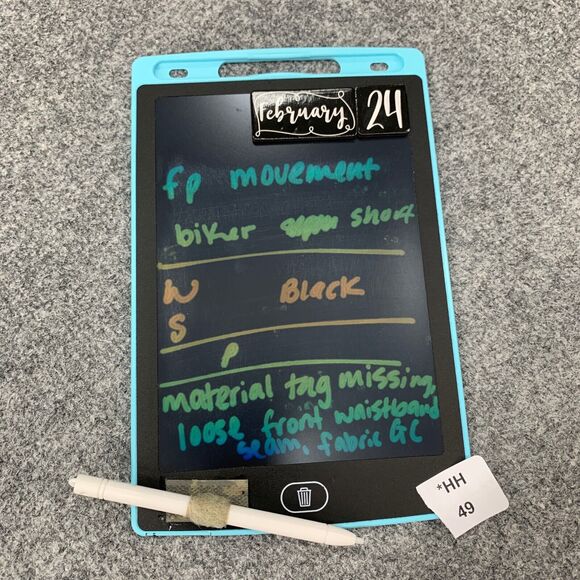 February 24
fp movement
biker short
W Black
S
P
material tag missing,
loose front waistband
seam, fabric GC
*HH
49